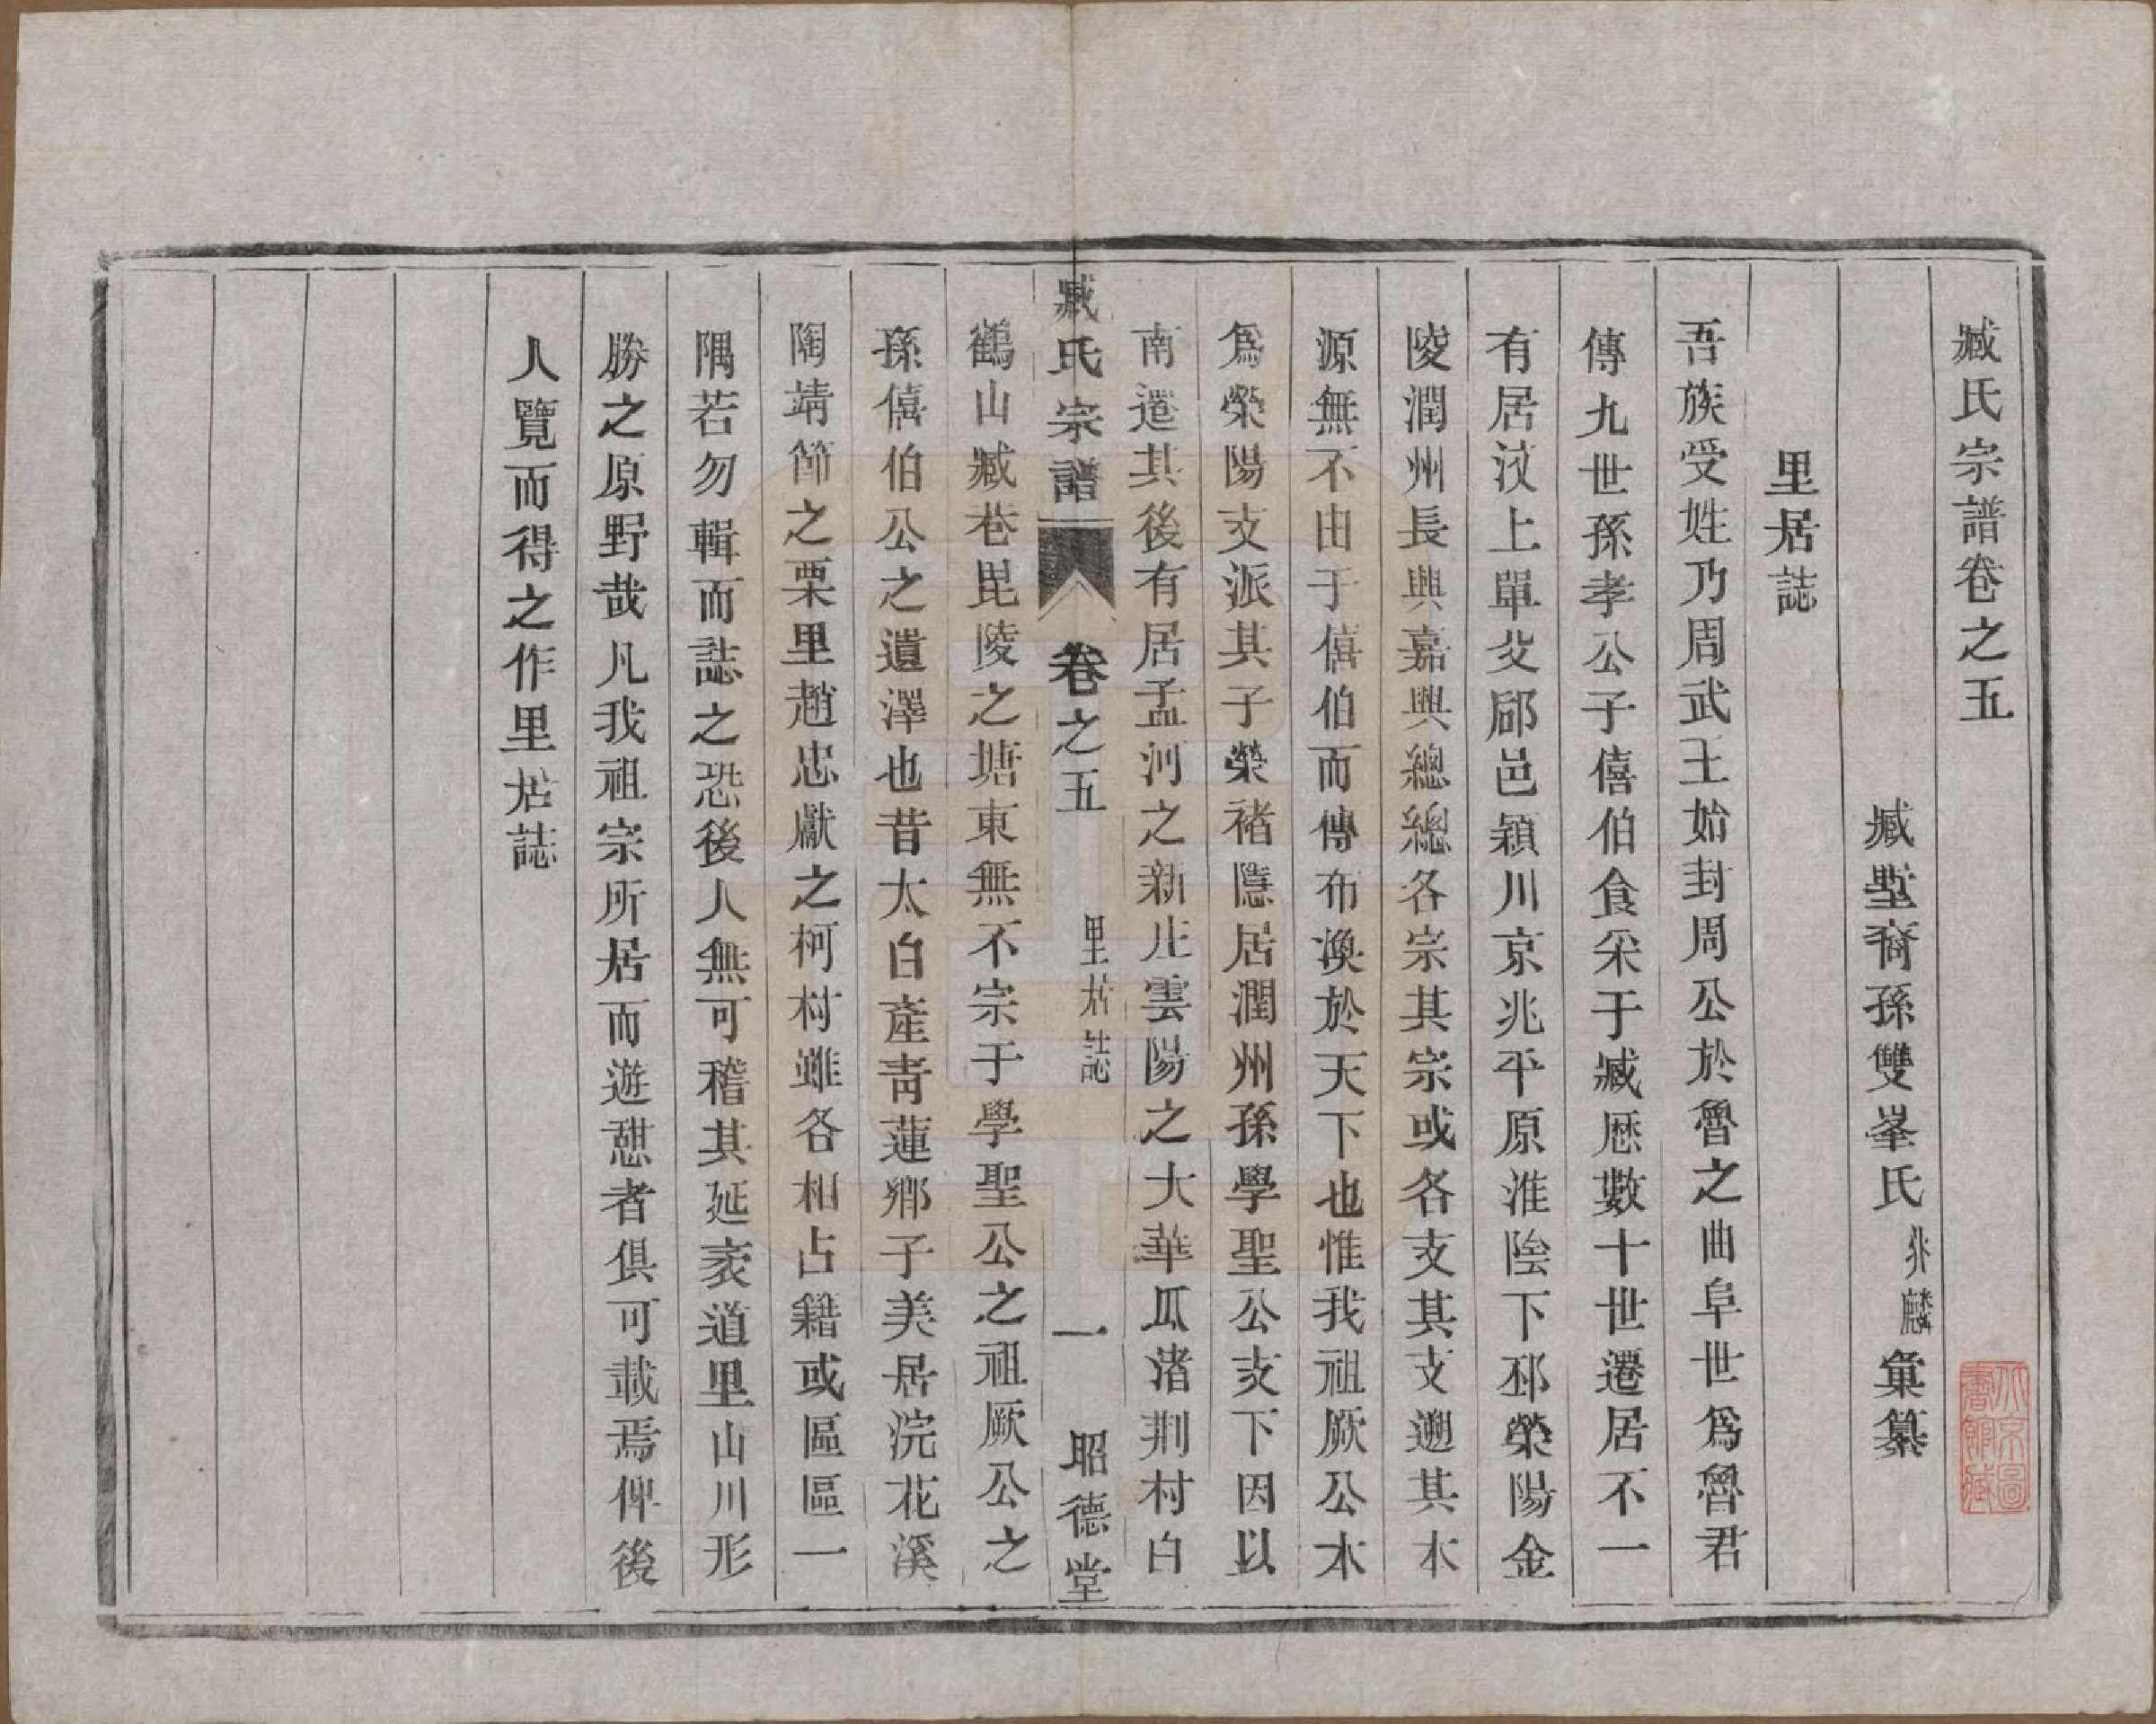 臧氏宗譜卷之五
臧墅裔孫雙峯氏兆麟彙纂
里居誌
吾族受姓乃周武王始封周公於魯之曲阜世爲魯君
傳九世孫孝公子僖伯食采于臧歷數十世遷居不一
有居汶上單父郈邑穎川京兆平原淮陰下邳榮陽金
陵潤州長興嘉興總總各宗其宗或各支其支遡其木
源無不由于僖伯而傳布渙於天下也惟我祖厥公本
爲榮陽支派其子榮褚隱居潤州孫學聖公支下因以
南遷其後有居孟河之新庄雲陽之大華瓜渚荆村白
鶴山臧巷毘陵之塘東無不宗于學聖公之祖厥公之
孫僖伯公之遺澤也昔太白產青蓮鄉子美居浣花溪
陶靖節之栗里趙忠獻之柯村雖各相占籍或區區一
隅若勿輯而誌之恐後人無可稽其延袤道里山川形
勝之原野哉凡我祖宗所居而遊憇者俱可載焉俾後
人覽而得之作里居誌
臧氏宗譜
卷之五
里居誌
一
昭德堂
京圖
書館藏